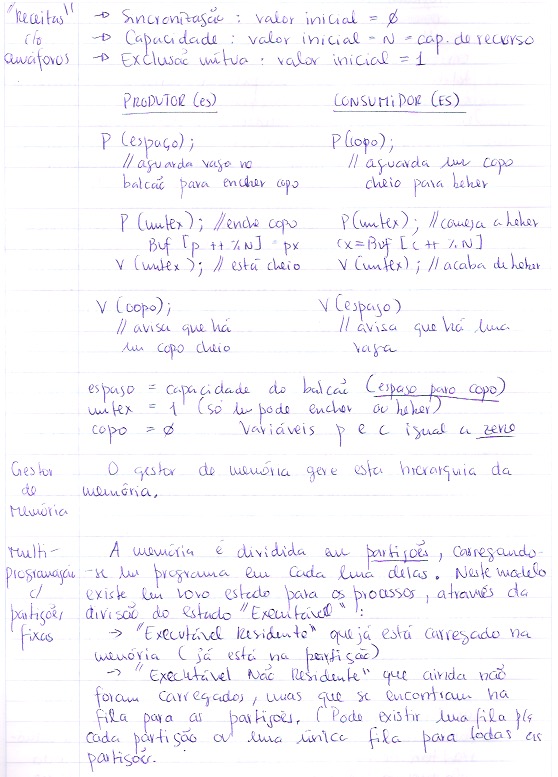 "Receitas" → Sincronização : valor inicial = ∅
c/o → Capacidade : valor inicial = N = cap. do recurso
semáforos → Exclusão mútua : valor inicial = 1
PRODUTOR (es) CONSUMIDOR (ES)
P (espaço); P(copo);
// aguarda vaga no // aguarda um copo
balcão para encher copo cheio para beber
P (mutex); // enche copo P(mutex); // começa a beber
Buf [p ++ % N] = px cx = Buf [c ++ % N]
V (mutex); // está cheio V (mutex); // acaba de beber
V (copo); V (espaço)
// avisa que há // avisa que há uma
um copo cheio vaga
espaço = capacidade do balcão (espaço para copo)
mutex = 1 (só um pode encher ou beber)
copo = ∅ Variáveis p e c igual a zero
Gestor O gestor de memória gere esta hierarquia da
de memória.
Memória
Multi- A memória é dividida em partições, carregando-
programação -se um programa em cada uma delas. Neste modelo
c/ existe um novo estado para os processos, através da
partições divisão do estado "Executável" :
fixas → "Executável Residente" que já está carregado na
memória (já está na partição)
→ "Executável Não Residente" que ainda não
foram carregados, mas que se encontram na
fila para as partições. (Pode existir uma fila p/a
cada partição ou uma única fila para todas as
partições.